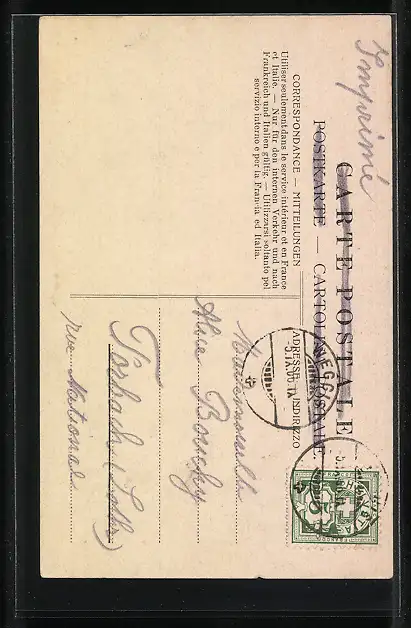 Imprimé
CARTE POSTALE
POSTKARTE — CARTOLINA POSTALE
CORRESPONDANCE — MITTEILUNGEN
Utiliser seulement dans le service intérieur et en France
et Italie. — Nur für den internen Verkehr und nach
Frankreich und Italien gültig. — Utilizzarsi soltanto pel
servizio interno e per la Francia ed Italia.
ADRESSE — INDIRIZZO
WEGGIS
Mademoiselle
Alice Bouchy
Forbach (Lothr)
rue National
5